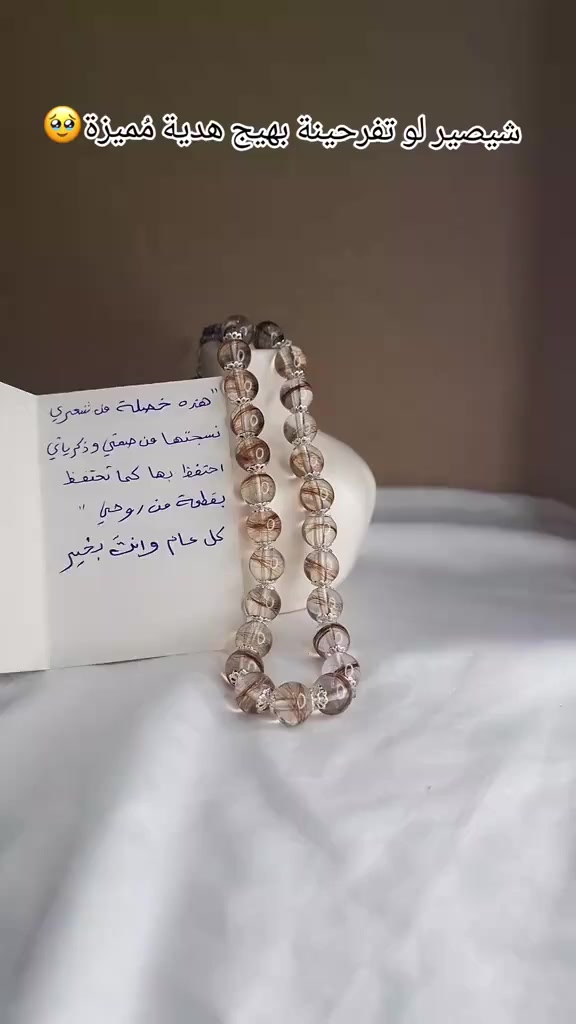 شيصير لو تفرحينة بهيج هدية مُميزة🥹
"هذه خصلة من شعري
نسجتها من صمتي وذكرياتي
احتفظ بها كما تحتفظ
بقطعة من روحي"
كل عام وانتَ بخير